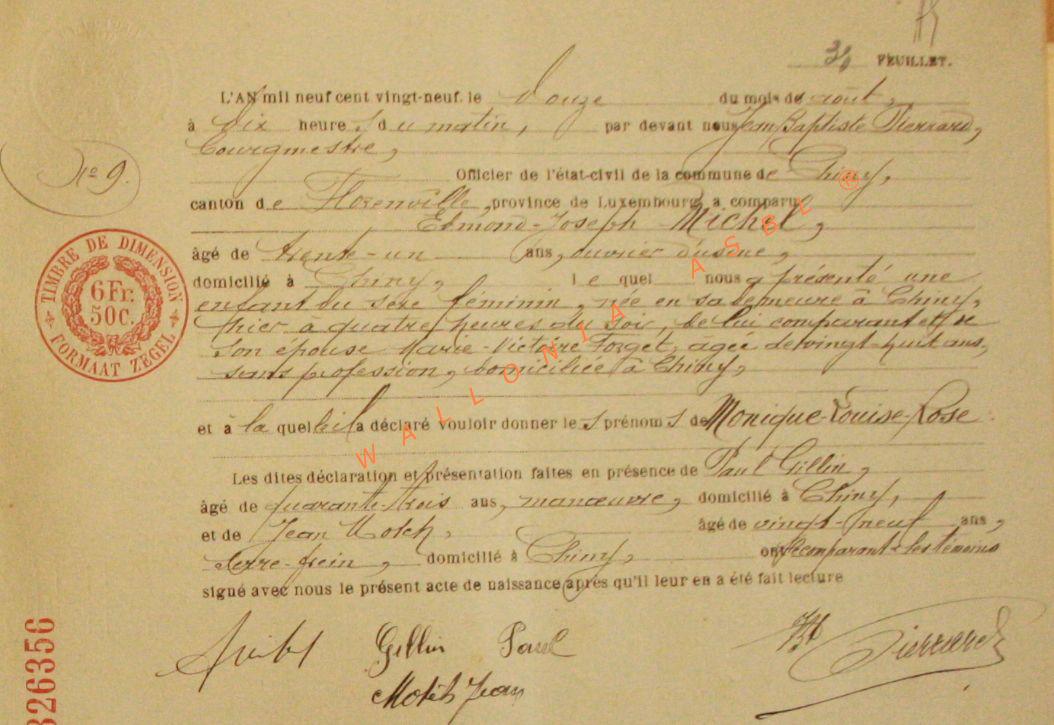 34 FEUILLET.
L'AN mil neuf cent vingt-neuf, le douze du mois de août,
à dix heures du matin, par devant nous Jean Baptiste Pierrard,
Bourgmestre,
N° 9.
Officier de l'état-civil de la commune de Chiny,
canton de Florenville, province de Luxembourg, a comparu
Edmond-Joseph Michel,
âgé de trente-un ans, ouvrier d'usine,
domicilié à Chiny, le quel nous a présenté une
enfant du sexe féminin, née en sa demeure à Chiny,
hier à quatre heures du soir, de lui comparant et de
son épouse Marie-Victoire Forget, âgée de vingt-huit ans,
sans profession, domiciliée à Chiny,
et à la quelle il a déclaré vouloir donner les prénoms de Monique-Louise-Rose
Les dites déclaration et présentation faites en présence de Paul Gillin,
âgé de quarante-trois ans, manœuvre, domicilié à Chiny,
et de Jean, âgé de vingt-neuf ans,
serre-frein, domicilié à Chiny, ont le comparant et les témoins
signé avec nous le présent acte de naissance après qu'il leur en a été fait lecture
Gillin Paul
Jean
Pierrard
TIMBRE DE DIMENSION
6 Fr.
50C.
FORMAAT ZEGEL
326356
WALLONIA ASBL ®